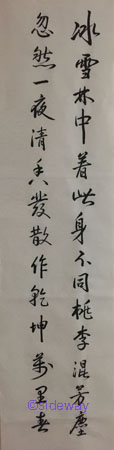 冰雪林中着此身不同桃李混芳塵
忽然一夜清香發散作乾坤萬里春
©sfdeway